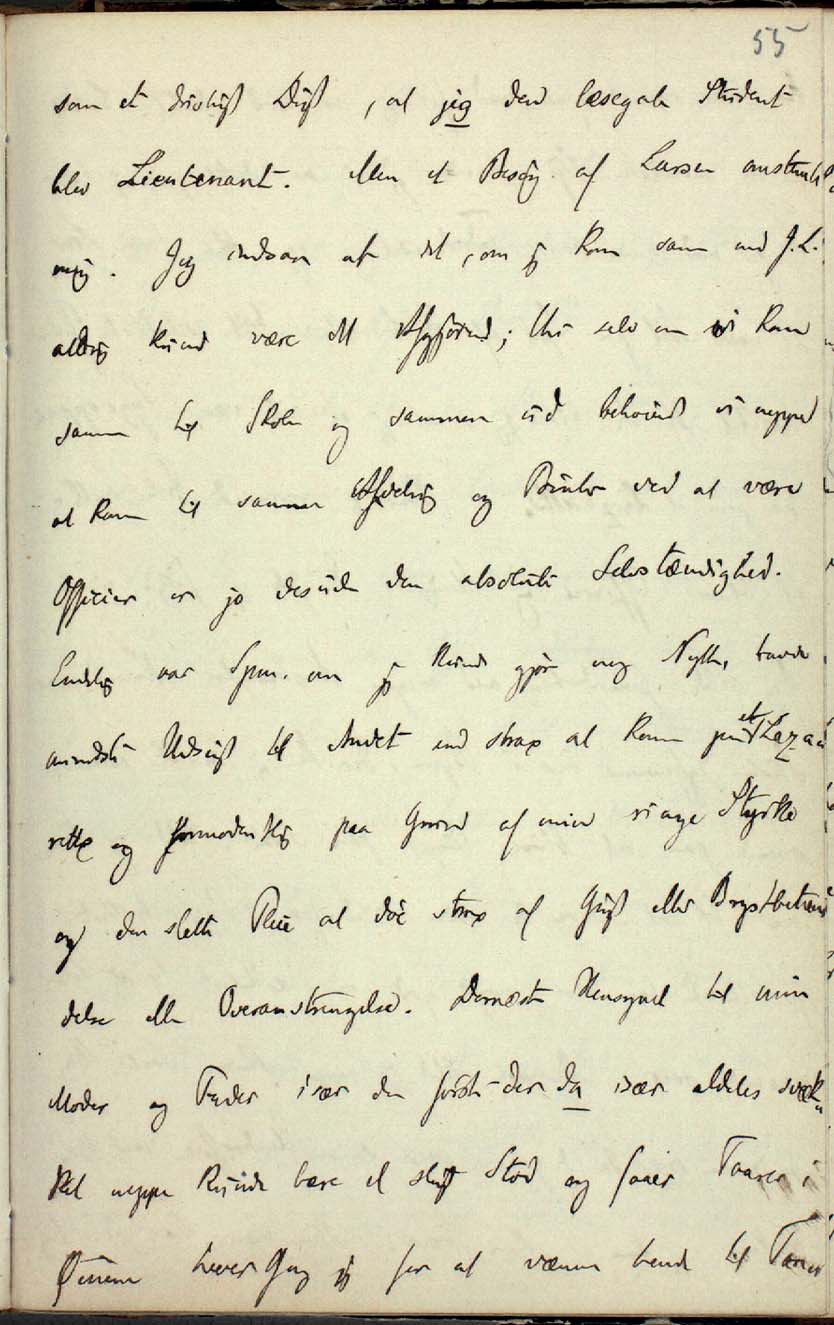 55
som et dristigt Digt, at jig den læsegale Student
blev Lieutenant. Men et Besøg af Larsen omstemte
mig. Jeg indsaa at det, om jeg kom sam med J.L.
aldrig kunde være det Afgjørende; thi selv om vi kom
sammen til Skolen og sammen ud behøvede vi neppe
at komme til samme Afdeling og Bindet ved at være
Officier er jo desuden den absolute Selvstændighed.
Endelig var Spm. om jeg kunde gjøre nog Nytte, havde
mindste Udsigt til Andet end strax at komme paa et Laza
rettx og formodentlig paa Grund af min ringe Styrke
og den slette Pleie at døe strax af Gigt eller Brystbetæn
delse eller Overanstrengelse. Dernæst Hensynet til min
Moder og Fader især den første der da især aldeles svæk
ket neppe kunde bære et sligt Stød og faaer Taarer i
Øinene hver Gang jeg for at vænne hende til Tanken